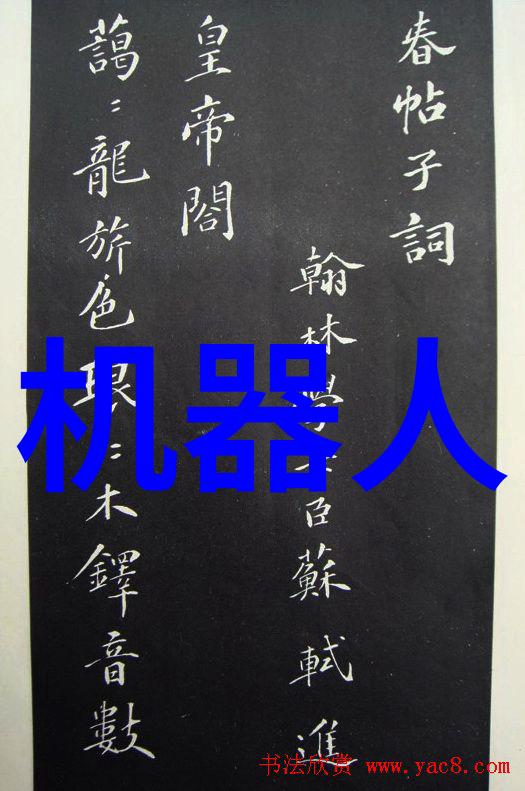 春帖子詞
翰林學士臣蘇軾進
皇帝閤
藹〻龍旂色琅〻木鐸音數
机器人
书法欣赏 www.yac8.com